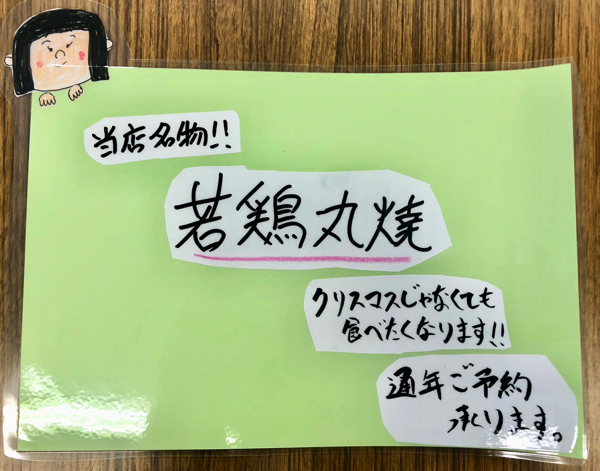 当店名物!!
若鶏丸焼
クリスマスじゃなくても
食べたくなります!!
通年ご予約
承ります。